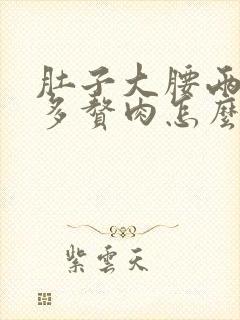 肚子大腰兩
多贅肉怎麼
紫雲天